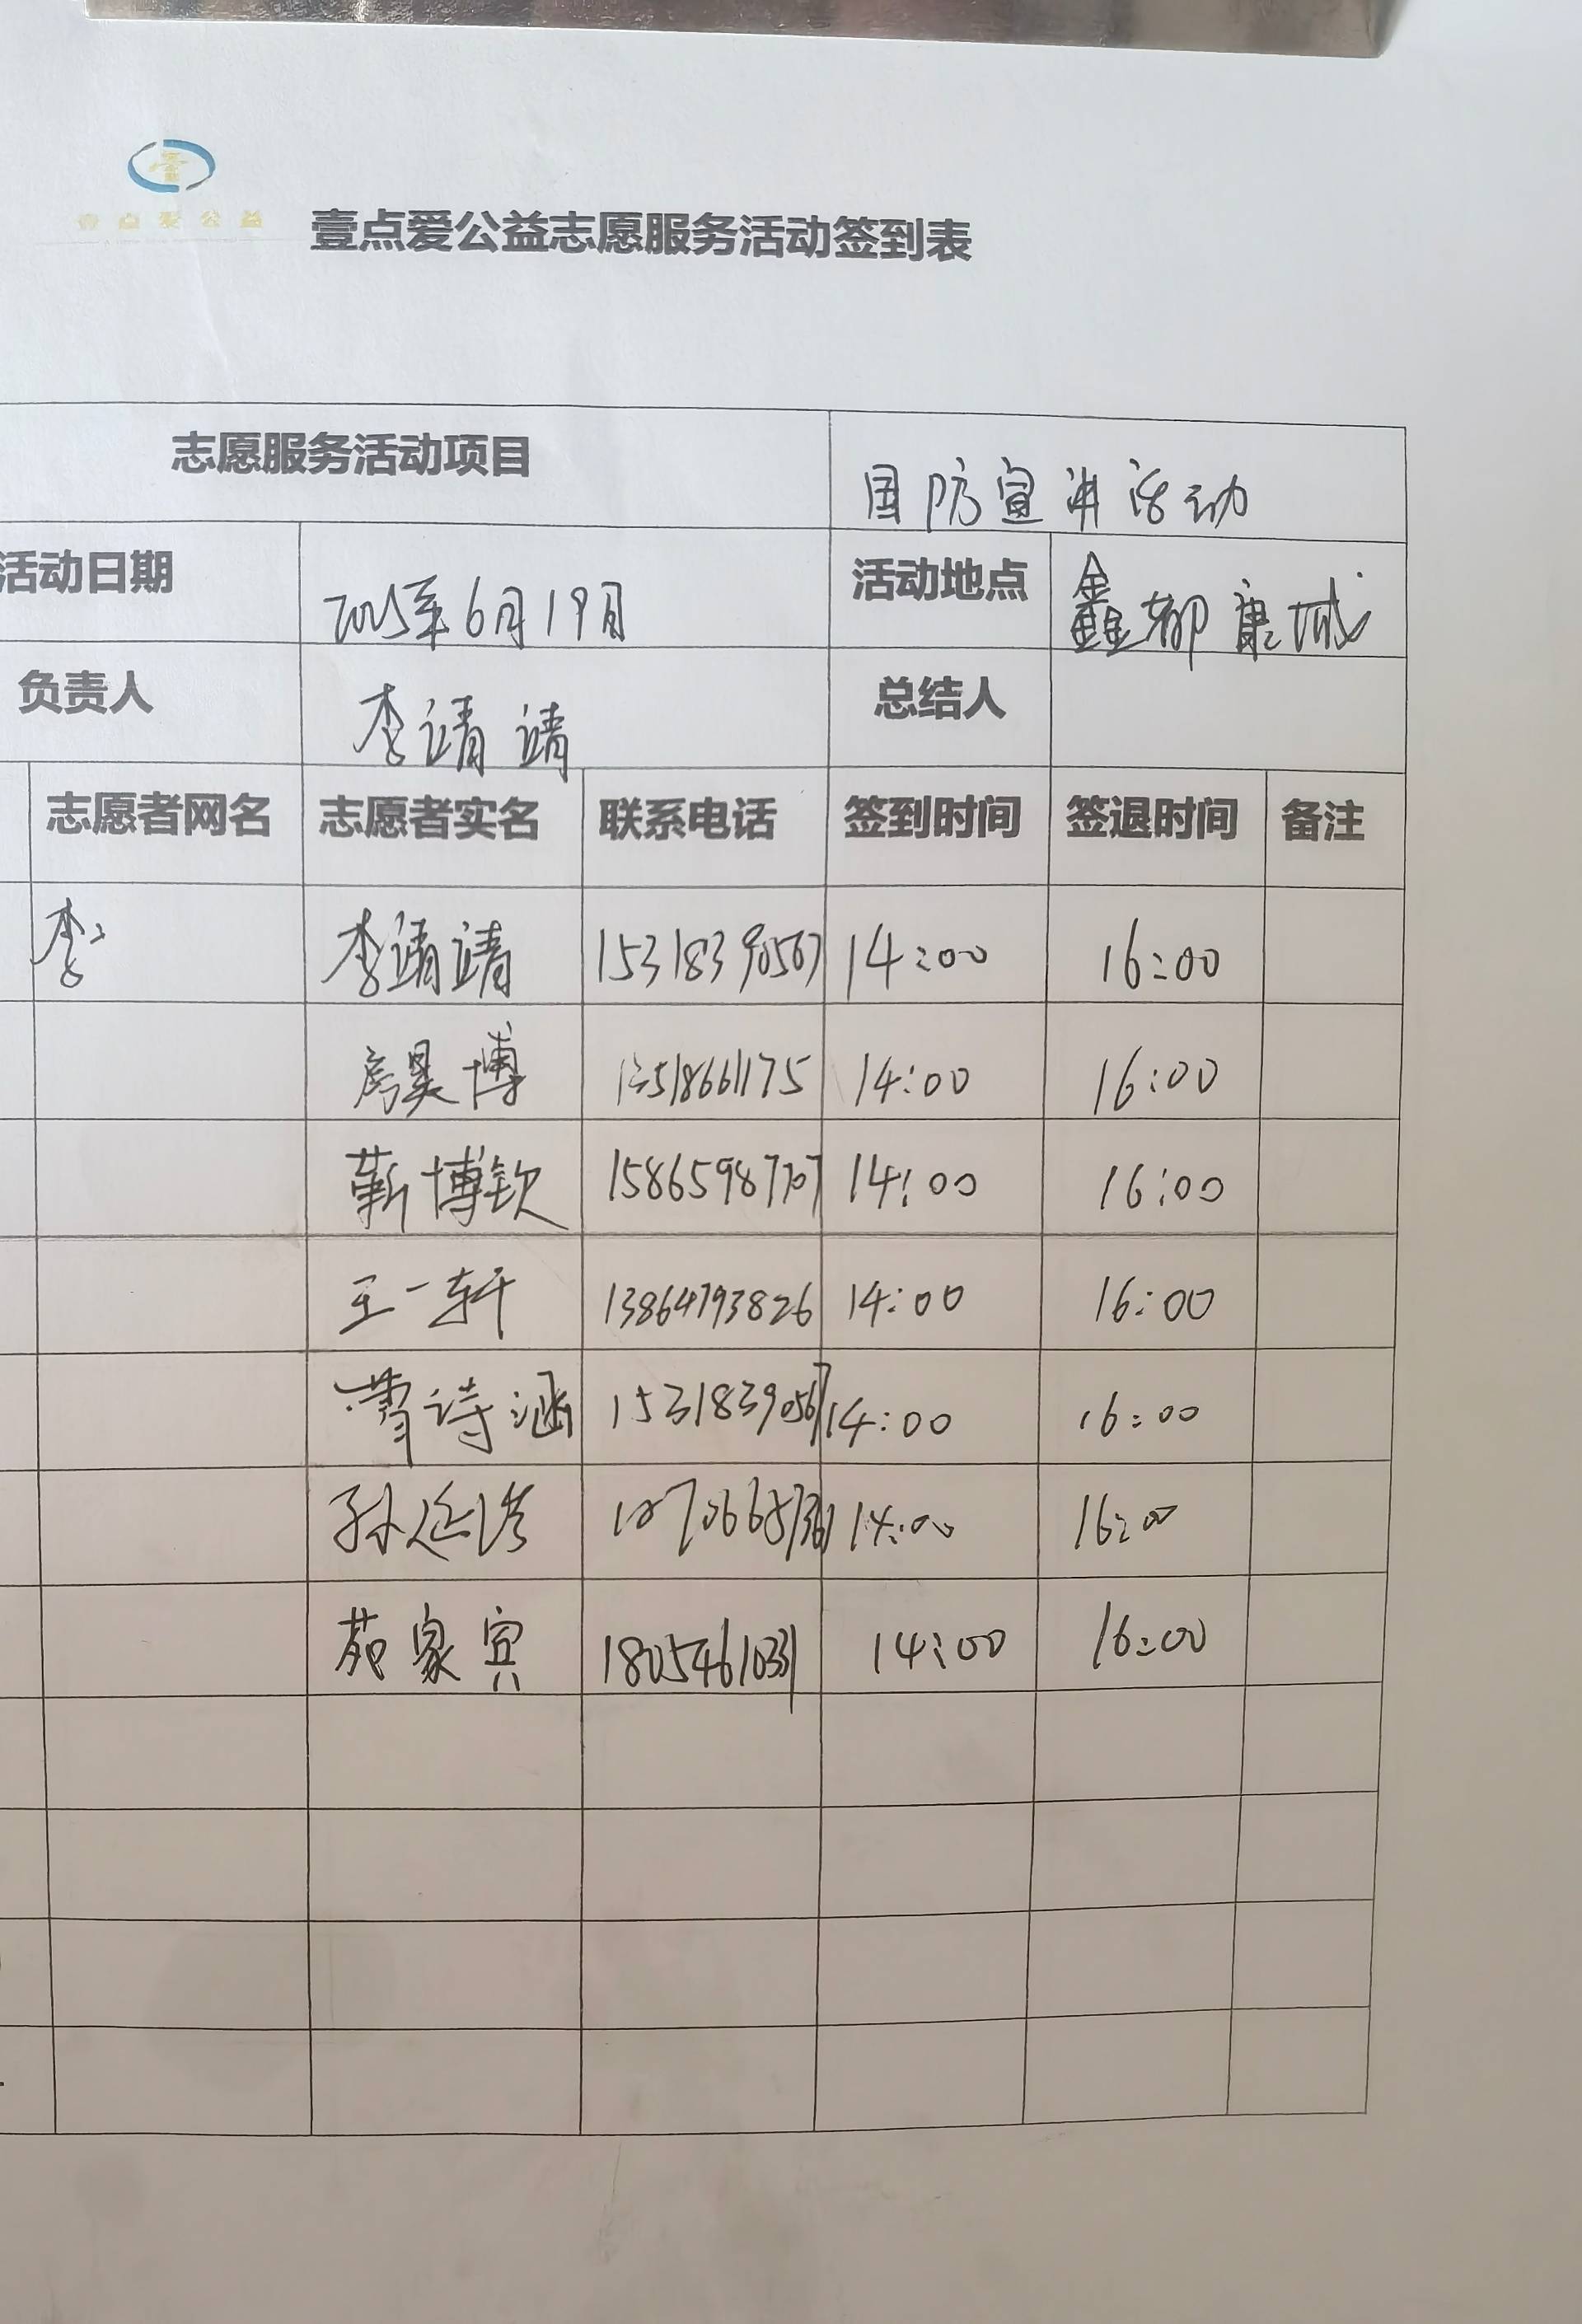 壹点爱公益
壹点爱公益志愿服务活动签到表
志愿服务活动项目 国防宣讲活动
活动日期 2025年6月19日 活动地点 鑫都康城
负责人 李靖靖 总结人
志愿者网名 志愿者实名 联系电话 签到时间 签退时间 备注
李 李靖靖 15318390567 14:00 16:00
房昊博 13518661175 14:00 16:00
靳博钦 15865987707 14:00 16:00
王一轩 13864793826 14:00 16:00
曹诗涵 15318390567 14:00 16:00
孙延 14:00 16:00
苑家宾 18054610331 14:00 16:00